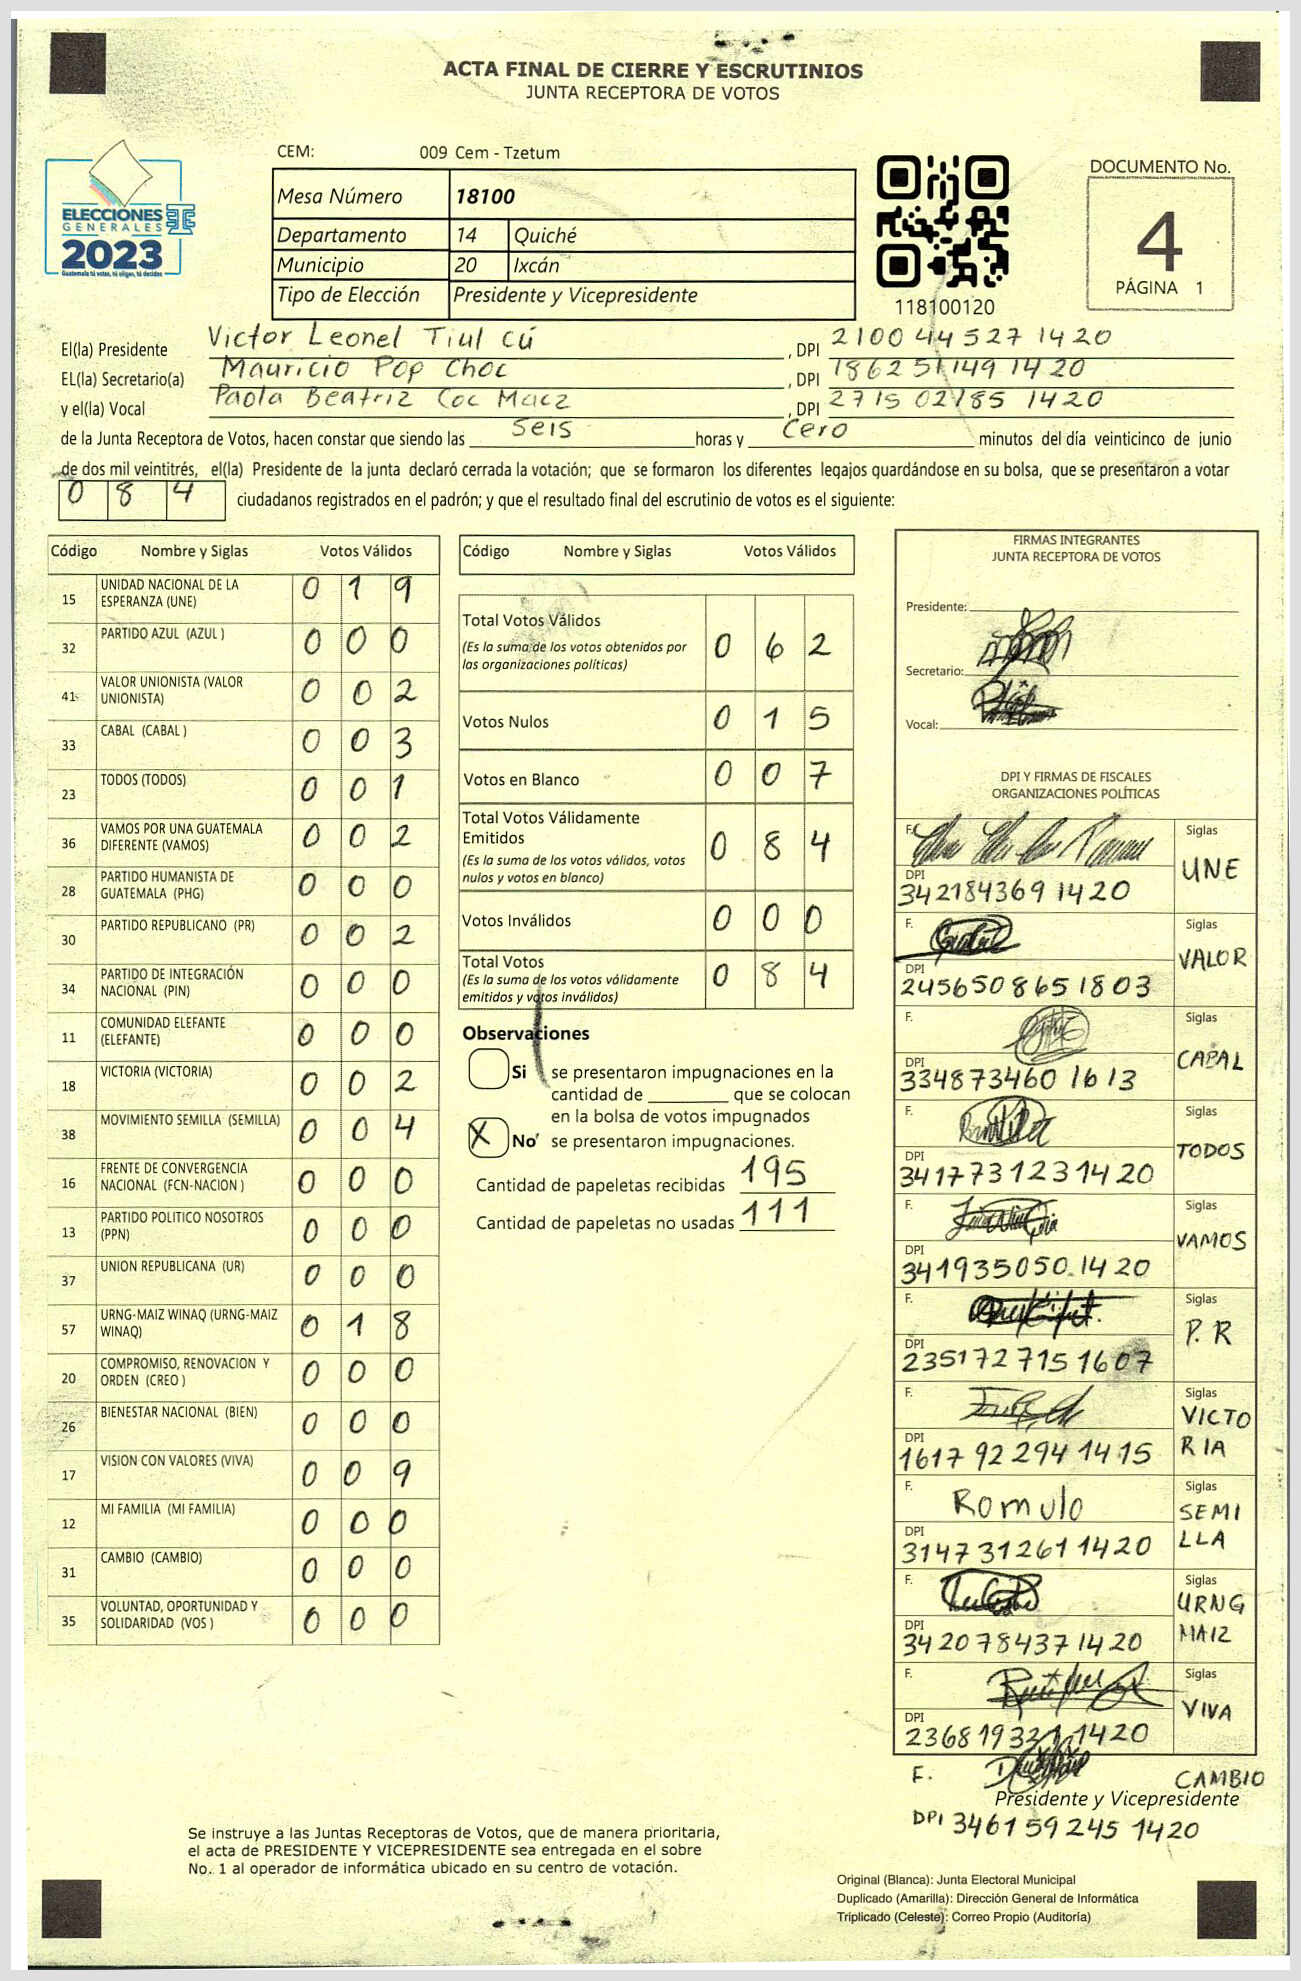 ACTA FINAL DE CIERRE Y ESCRUTINIOS
JUNTA RECEPTORA DE VOTOS
CEM: 009 Cem - Tzetum
Mesa Número 18100
Departamento 14 Quiché
Municipio 20 Ixcán
Tipo de Elección Presidente y Vicepresidente
ELECCIONES
GENERALES
2023
Guatemala tú votas, tú eliges, tú decides
118100120
DOCUMENTO No.
4
PÁGINA 1
El(la) Presidente Victor Leonel Tiul Cú , DPI 2100 44527 1420
EL(la) Secretario(a) Mauricio Pop Choc , DPI 1862 51149 1420
y el(la) Vocal Paola Beatriz Coc Maez , DPI 2715 02185 1420
de la Junta Receptora de Votos, hacen constar que siendo las Seis horas y Cero minutos del día veinticinco de junio
de dos mil veintitrés, el(la) Presidente de la junta declaró cerrada la votación; que se formaron los diferentes legajos quardándose en su bolsa, que se presentaron a votar
0 8 4 ciudadanos registrados en el padrón; y que el resultado final del escrutinio de votos es el siguiente:
Código Nombre y Siglas Votos Válidos
15 UNIDAD NACIONAL DE LA ESPERANZA (UNE) 0 1 9
32 PARTIDO AZUL (AZUL ) 0 0 0
41 VALOR UNIONISTA (VALOR UNIONISTA) 0 0 2
33 CABAL (CABAL ) 0 0 3
23 TODOS (TODOS) 0 0 1
36 VAMOS POR UNA GUATEMALA DIFERENTE (VAMOS) 0 0 2
28 PARTIDO HUMANISTA DE GUATEMALA (PHG) 0 0 0
30 PARTIDO REPUBLICANO (PR) 0 0 2
34 PARTIDO DE INTEGRACIÓN NACIONAL (PIN) 0 0 0
11 COMUNIDAD ELEFANTE (ELEFANTE) 0 0 0
18 VICTORIA (VICTORIA) 0 0 2
38 MOVIMIENTO SEMILLA (SEMILLA) 0 0 4
16 FRENTE DE CONVERGENCIA NACIONAL (FCN-NACION ) 0 0 0
13 PARTIDO POLITICO NOSOTROS (PPN) 0 0 0
37 UNION REPUBLICANA (UR) 0 0 0
57 URNG-MAIZ WINAQ (URNG-MAIZ WINAQ) 0 1 8
20 COMPROMISO, RENOVACION Y ORDEN (CREO ) 0 0 0
26 BIENESTAR NACIONAL (BIEN) 0 0 0
17 VISION CON VALORES (VIVA) 0 0 9
12 MI FAMILIA (MI FAMILIA) 0 0 0
31 CAMBIO (CAMBIO) 0 0 0
35 VOLUNTAD, OPORTUNIDAD Y SOLIDARIDAD (VOS ) 0 0 0
Código Nombre y Siglas Votos Válidos
Total Votos Válidos
(Es la suma de los votos obtenidos por
las organizaciones políticas) 0 6 2
Votos Nulos 0 1 5
Votos en Blanco 0 0 7
Total Votos Válidamente
Emitidos
(Es la suma de los votos válidos, votos
nulos y votos en blanco) 0 8 4
Votos Inválidos 0 0 0
Total Votos
(Es la suma de los votos válidamente
emitidos y votos inválidos) 0 8 4
Observaciones
Si se presentaron impugnaciones en la
cantidad de ________ que se colocan
en la bolsa de votos impugnados
X No se presentaron impugnaciones.
Cantidad de papeletas recibidas 195
Cantidad de papeletas no usadas 111
FIRMAS INTEGRANTES
JUNTA RECEPTORA DE VOTOS
Presidente:
Secretario:
Vocal:
DPI Y FIRMAS DE FISCALES
ORGANIZACIONES POLÍTICAS
F. Siglas UNE
DPI 342184369 1420
F. Siglas VALOR
DPI 2456508651803
F. Siglas CAPAL
DPI 334873460 1613
F. Siglas TODOS
DPI 3417731231420
F. Siglas VAMOS
DPI 341935050.1420
F. Siglas P.R
DPI 2351727151607
F. Siglas VICTO
RIA
DPI 1617 92 294 1415
F. Romulo Siglas SEMI
LLA
DPI 3147312611420
F. Siglas URNG
MAIZ
DPI 3420784371420
F. Siglas VIVA
DPI 236819321 1420
F. CAMBIO
Presidente y Vicepresidente
DPI 346159245 1420
Se instruye a las Juntas Receptoras de Votos, que de manera prioritaria,
el acta de PRESIDENTE Y VICEPRESIDENTE sea entregada en el sobre
No. 1 al operador de informática ubicado en su centro de votación.
Original (Blanca): Junta Electoral Municipal
Duplicado (Amarilla): Dirección General de Informática
Triplicado (Celeste): Correo Propio (Auditoría)